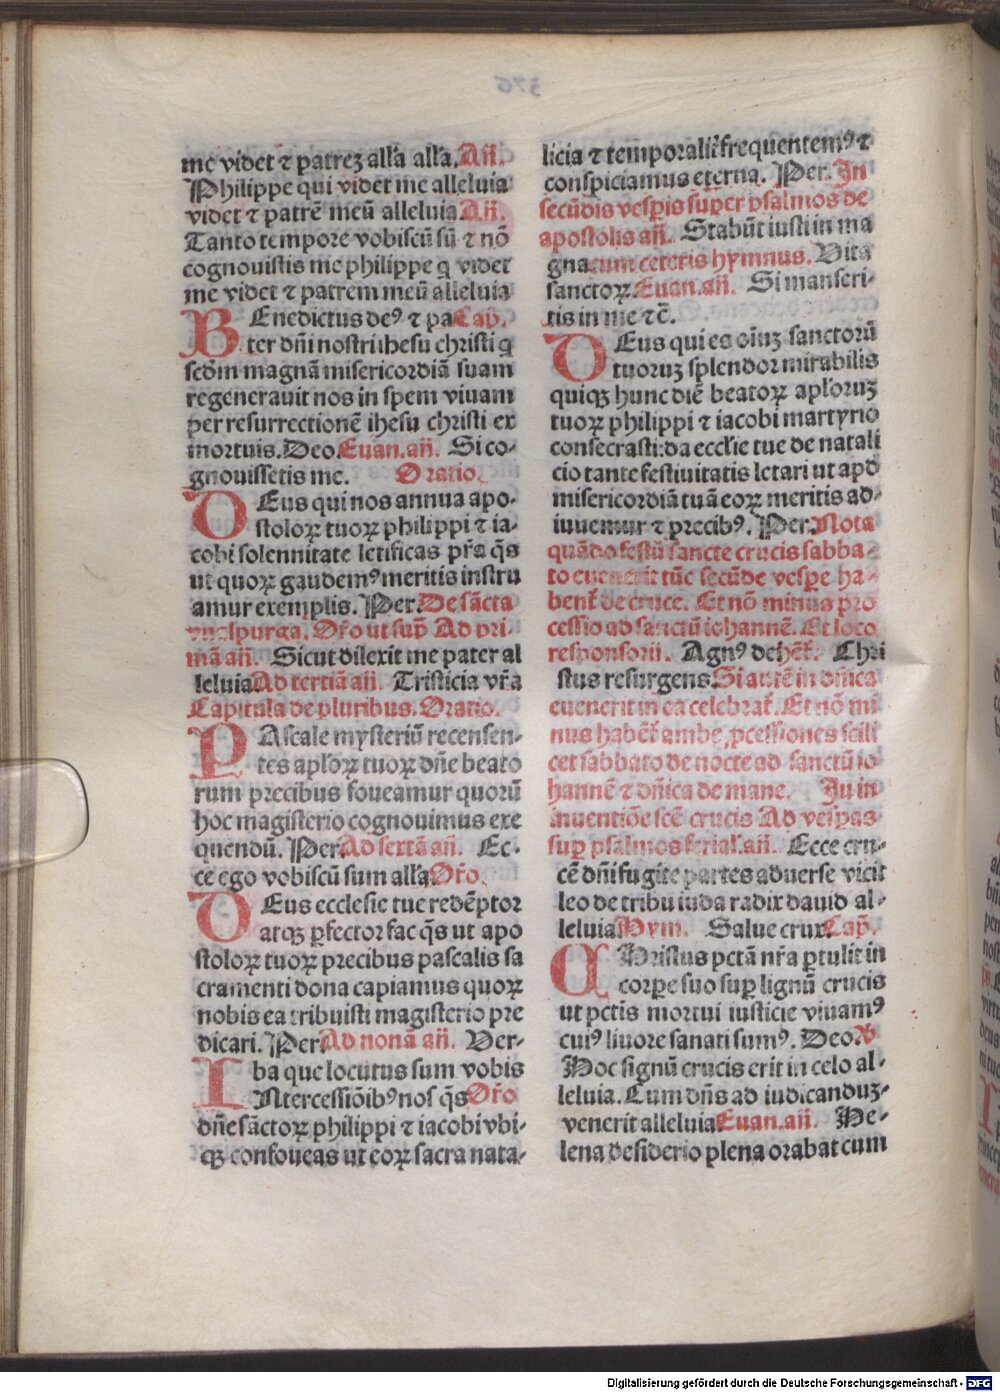 me videt ⁊ patreʒ alľa alľa. Añ.
Philippe qui videt me alleluia
videt ⁊ patrē meū alleluia Añ.
Tanto tempore vobiscū sū ⁊ nō
cognouistis me philippe q videt
me videt ⁊ patrem meū alleluia
BEnedictus deꝰ ⁊ pa Cap̄.
ter dñi nostri ihesu christi q
scḋm magnā misericordiā suam
regenerauit nos in spem viuam
per resurrectionē ihesu christi ex
mortuis. Deo. Euan. añ. Si co-
gnouissetis me. Oratio.
DEus qui nos annua apo-
stoloꝝ tuoꝝ philippi ⁊ ia-
cobi solennitate letificas p̄ra q̄s
ut quoꝝ gaudemꝰ meritis instru
amur exemplis. Per. De sācta
vualpurga. Or̄o ut sup̄ Ad pri-
mā añ. Sicut dilexit me pater al
leluia Ad tertiā añ. Tristicia vr̄a
Capitula de pluribus. Oratio.
PAscale mysteriū recensen-
tes apl̄oꝝ tuoꝝ dñe beato
rum precibus foueamur quorū
hoc magisterio cognouimus exe
quendū. Per. Ad sextā añ. Ec-
ce ego vobiscū sum alľa Or̄o.
DEus ecclesie tue redēptor
atqꝫ ꝑfector fac q̄s ut apo
stoloꝝ tuoꝝ precibus pascalis sa
cramenti dona capiamus quoꝝ
nobis ea tribuisti magisterio pre
dicari. Per. Ad nonā añ. Ver-
ba que locutus sum vobis
INtercessiōibꝰ nos q̄s Or̄o
dñe sāctoꝝ philippi ⁊ iacobi vbi-
qꝫ confoueas ut eoꝝ sacra nata-
licia ⁊ temporalit̓ frequentemꝰ ⁊
conspiciamus eterna. Per. In
secūdis vesp̄is sup̄er psalmos de
apostolis añ. Stabūt iusti in ma
gna cum ceteris hymnus. Vita
sanctoꝝ Euan. añ. Si manseri-
tis in me ⁊c̄.
DEus qui es oīuꝫ sanctorū
tuoruꝫ splendor mirabilis
quiqꝫ hunc diē beatoꝝ apl̄oruꝫ
tuoꝝ philippi ⁊ iacobi martyrio
consecrasti: da eccl̄ie tue de natali
cio tante festiuitatis letari ut apḋ
misericordiā tuā eoꝝ meritis ad-
iuuemur ⁊ precibꝰ. Per. Nota
quādo festū sancte crucis sabba-
to euenerit tūc secūde vesp̄e ha-
bent̓ de cruce. Et nō minus pro
cessio ad sanctū iohannē. Et loco
responsorii. Agnꝰ dei hēt̓. Chri
stus resurgens Si autē in dñica
euenerit in ea celebrat̓. Et nō mi
nus habēt̓ ambe ꝓcessiones scili
cet sabbato de nocte ad sanctū io
hannē ⁊ dñica de mane. Iu in
inuentiōe scē crucis Ad vesp̄as
sup̄ psalmos ferial̓. añ. Ecce cru-
cē dñi fugite partes aduerse vicit
leo de tribu iuda radix dauid al-
leluia Hym. Salue crux Cap̄.
CHristus pctā nr̄a ꝑtulit in
corpe suo sup̄ lignū crucis
ut pctis mortui iusticie viuamꝰ
cuiꝰ liuore sanati sumꝰ. Deo ℟
Hoc signū crucis erit in celo al-
leluia. Cum dñs ad iudicanduꝫ-
venerit alleluia Euan. añ. He-
lena desiderio plena orabat cum
Digitalisierung gefördert durch die Deutsche Forschungsgemeinschaft - DFG